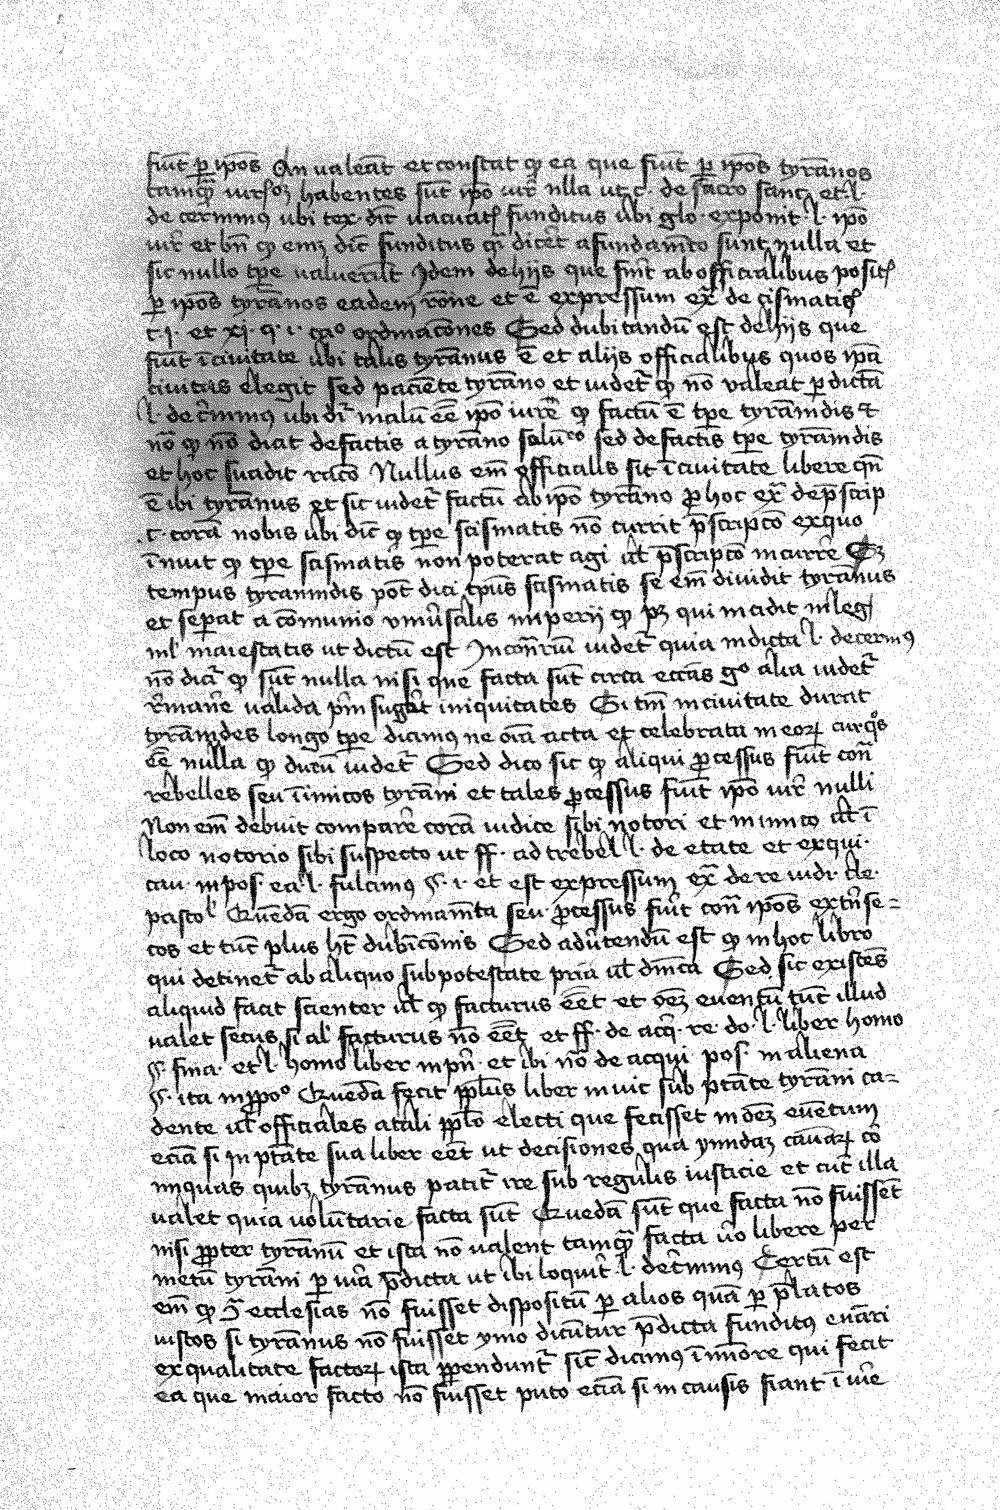 fiūt ꝑ ip̄os An ualeāt et constat ꝙ ea que fiūt ꝑ ip̄os tyrānos
habentes sūt ip̄o iur̄ nlla ut c. de sacro sanc. et l.
de cernimꝰ ubi tex. dic̄ funditus ubi glo. exponit. l. ip̄o
iur̄ et bn̄ ꝙ dic̄ funditus qͥ dicer̄t a fundam̄to sunt nulla et
sic nullo tp̄e ualuerūt Idem dehijs que fiūt ab officialibus
ꝑ ip̄os tyrānos eadem rōne et ē expressum ex̄ de
c. i. et xi. q. i. caͦ ordinacōnes Sed dubitandū est dehijs que
fiūt ī ciuitate ubi talis tyrānus ē et alijs officialibus quos ip̄a
ciuitas elegit sed paciēte tyrāno et uidet̄ ꝙ nō valeat ꝑ dictā
l. dec̄nimꝰ ubi dr̄ malū eē̄ ip̄o iure ꝙ factū ē tp̄e tyrānidis
nō ꝙ nō dicat defactis a tyrāno sed defactis tp̄e tyrānidis
et hoc suadit racō Nullus em̄ officialis sit ī ciuitate libere qn̄
ē ibi tyrānus et sic uidet̄ factū ab ip̄o tyrāno ꝓ hoc ex̄ de p̄scrip
c. corā nobis ubi dic̄ ꝙ tp̄e scismatis nō currit p̄scripcō exquo
īnuit ꝙ tp̄e scismatis non poterat agi ul̄ p̄scripcō incurre
tempus tyrannidis pot̄ dici tp̄us scismatis se em̄ diuidit tyrānus
et sep̄at a cōmunio vniu̓salis imperij ꝙ pꝫ qui incidit in leg
iul̓ maiestatis ut dictū est In cōn̄riū uidet̄ quia in dicta l. decernimꝰ
nō dicit̄ ꝙ sūt nulla nisi que facta sūt circa eccās gͦ alia uidet̄
r̄manē valida iniquitates Si tn̄ in ciuitate durat
tyrānides longo tp̄e dicimꝰ ne oīa acta et celebrata in eoꝝ
eē̄ nulla ꝙ durū uidet̄ Sed dico sic ꝙ aliqui ꝓcessus fiūt con̄
rebelles seu īimicos tyrāni et tales ꝓcessus fiūt ip̄o iur̄ nulli
Non em̄ debuit compare corā iudice sibi notori et inimico ul̄ ī
loco notorio sibi suspecto ut ff. ad trebel l. de etate et exqui.
cau. in pos. ea. l. fulcimꝰ §. i. et est expressum ex̄ de re iudi. cle.
pastol̓ Quedā ergo ordinam̄ta seu ꝓcessus fiūt con̄ ip̄os extr̄inse=
cos et tūc plus hē̄t dubitacōnis Sed adu̓tendū est ꝙ in hoc libro
qui detinet̄ ab aliquo sub potestate pria ul̄ dn̄ica Sed sic existēs
aliquid facit scienter ul̄ ꝙ facturus eē̄t et oēꝫ euentū tūc illud
ualet secus si al̓ facturus nō eē̄t et ff. de acq̄. re. do. l. liber homo
§. fina. et l. homo liber in pn̄. et ibi nō de acqui pos. in aliena
§. ita in ꝓpoͦ Quedā fecit ppl̄us liber in uic sub ptāte tyrāni ca=
dente ul̄ officiales a tali ppl̄o electi que fecisset in oēꝫ euētum
eciā si in ptāte sua liber eē̄t ut decisiones qua causaꝝ cō
iniquas quibꝫ tyrānus patit̄ ire sub regulis iusticie et cūt illa
ualet quia uolūtarie facta sūt Quedā sūt que facta nō fuissēt
nisi ꝓpter tyrānū et ista nō valent tamqꝫ̄ facta u̓o libere per
metū tyrāni ꝑ iura p̄dicta ut ibi loquit̄ l. dec̄nimꝰ Certū est
em̄ ꝙ ecclesias nō fuisset dispositū ꝑ alios quā ꝑ p̄latos
iustos si tyrānus nō fuisset ymo dicūtur p̄dicta funditꝰ
ex qualitate factoꝝ ista ꝑpendunt̄ sic̄ dicimꝰ ī minore qui fecit
ea que maior facto nō fuisset puto eciā si in causis fiant ī iure